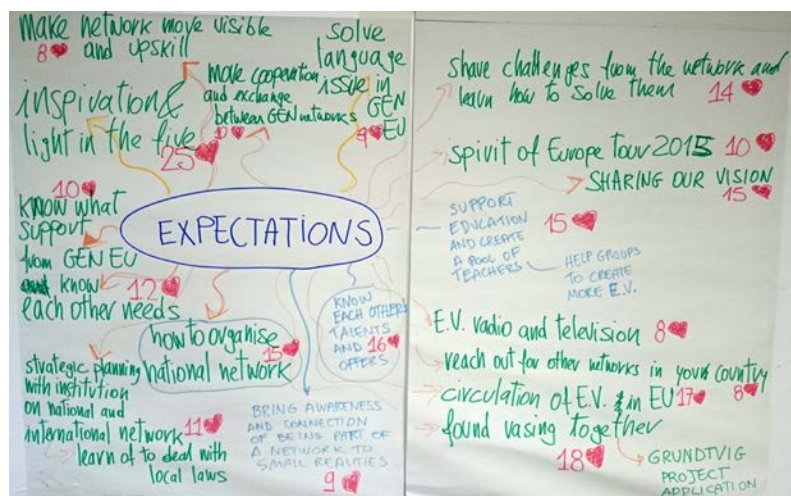 make network move visible
8 and upskill
solve
language
issue in
GEN
9 EU
move cooperation
and exchange
between GEN networks
10
inspivation &
light in the five
25
10
KNOW what
support
from GEN EU
and know
12
each other needs
EXPECTATIONS
how to organise
15
national network
KNOW
EACH OTHER
TALENTS
AND 16
OFFERS
strategic planning
with institution
on national and
international network 11
learn of to deal with
local laws
BRING AWARENESS
AND CONNECTION
OF BEING PART OF
A NETWORK TO
SMALL REALITIES
9
shave challenges from the network and
learn how to solve them 14
spivit of Europe Tour 2015 10
SHARING OUR VISION
15
SUPPORT
EDUCATION 15
AND CREATE
A POOL OF
TEACHERS
HELP GROUPS
TO CREATE
MORE E.V.
E.V. vadio and television 8
reach out for other networks in your country
8
circulation of E.V. in EU 17
found vasing together
18
GRUNDTVIG
PROJECT
APPLICATION